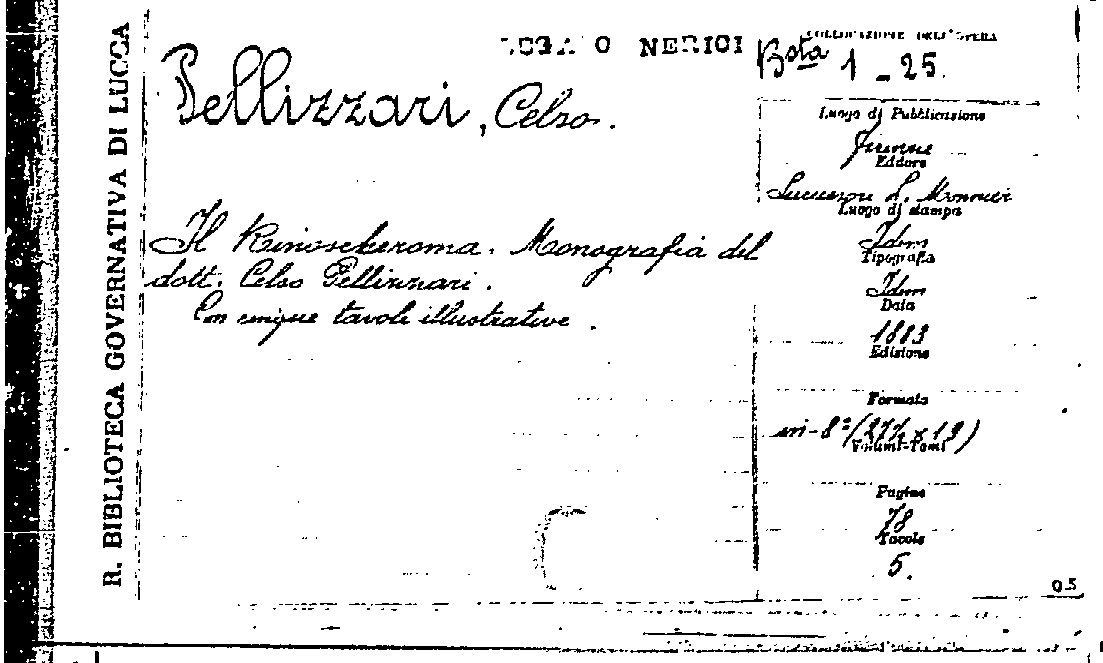 R. BIBLIOTECA GOVERNATIVA DI LUCCA
NERICI
COLLOCAZIONE DELL'OPERA
Bsta 1 - 25.
Pellizzari, Celso.
Il Rinoscleroma. Monografia del
dott. Celso Pellizzari.
Con cinque tavole illustrative.
Luogo di Pubblicazione
Firenze
Editore
Successori L. Monnier
Luogo di stampa
Idem
Tipografia
Idem
Data
1883
Edizione
Formato
in-8°
Volumi-Tomi
Pagine
78
Tavole
5.